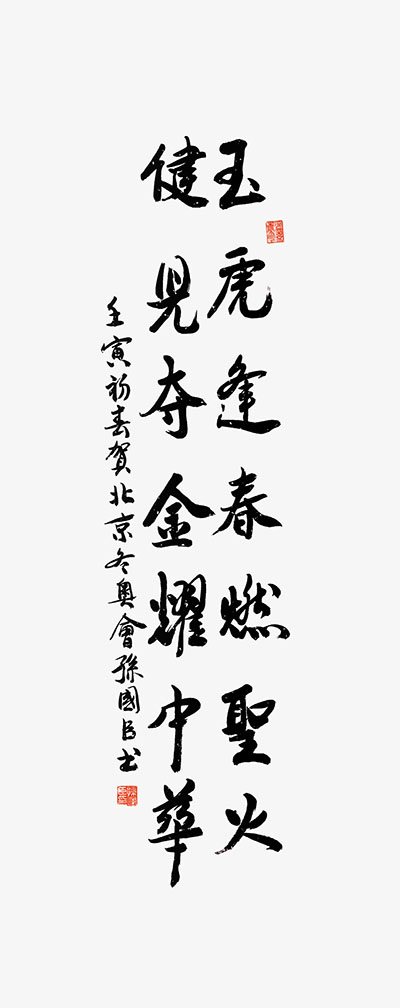 玉虎逢春燃聖火
健児夺金耀中華
壬寅初春賀北京冬奧會孫國臣书